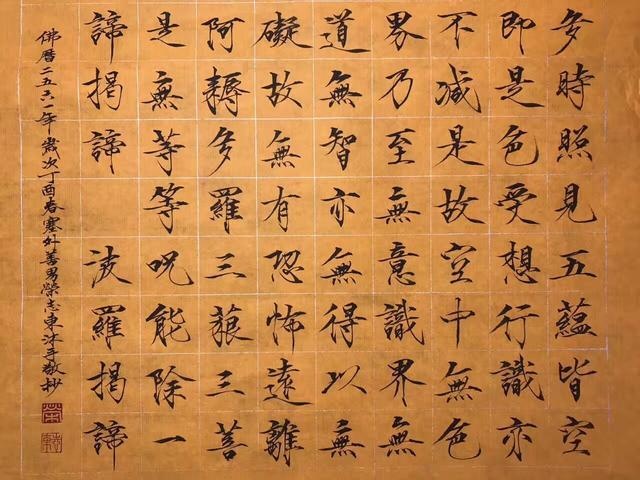 多時照見五蘊皆空
即是色受想行識亦
不減是故空中無色
界乃至無意識界無
道無智亦無得以無
礙故無有恐怖遠離
阿耨多羅三藐三菩
是無等等呪能除一
諦揭諦 波羅揭諦
佛曆二五六一年歲次丁酉春塞外善男榮志東沐手敬抄